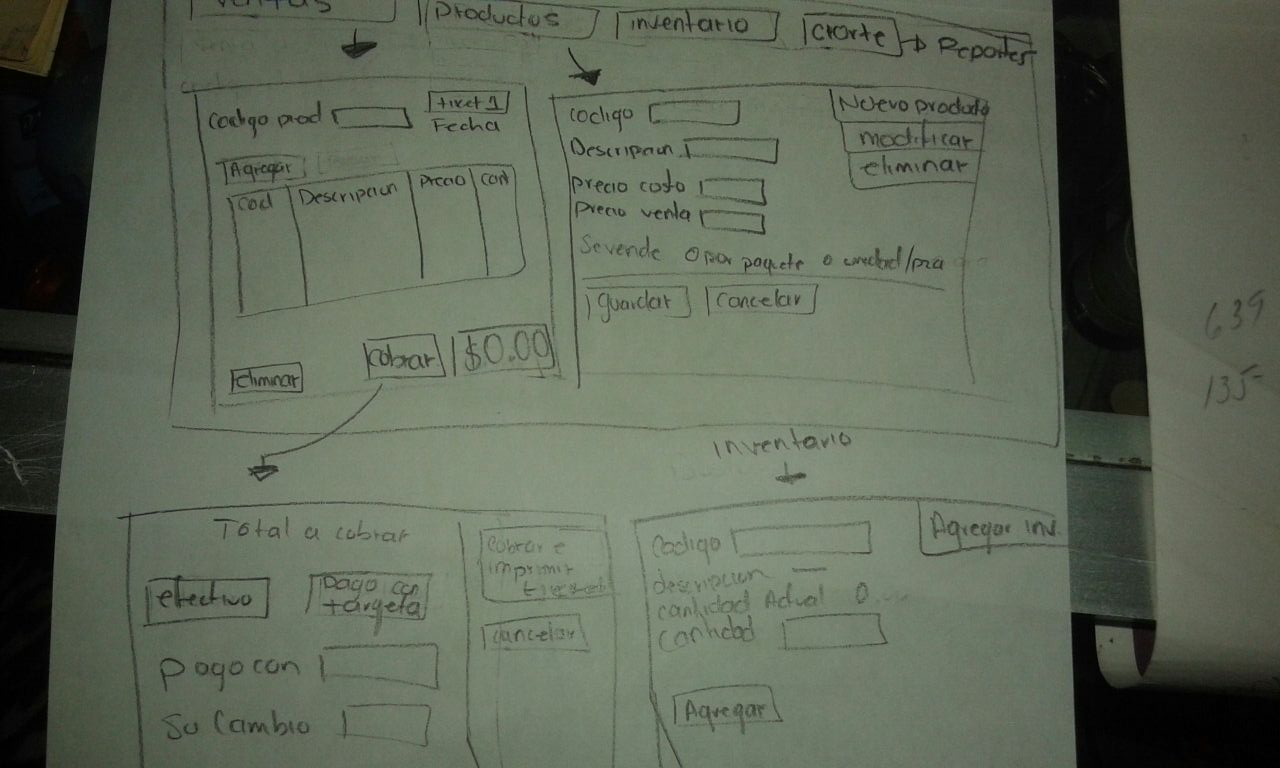 Ventas
Productos
inventario
Crorte
Reportes
Codigo prod
ticket 1
Fecha
Agregar
Cod
Descripcion
Precio
cant
eliminar
Cobrar
$0.00
codigo
Descripcion
precio costo
Precio venta
Se vende O por paquete o unidad/pza
Guardar
Cancelar
Nuevo producto
modificar
eliminar
Total a cobrar
efectivo
pago con
targeta
pago con
Su Cambio
Cobrar e
imprimir
cancelar
inventario
Codigo
descripcion
cantidad Actual 0
cantidad
Agregar
Agregar inv.
639
135